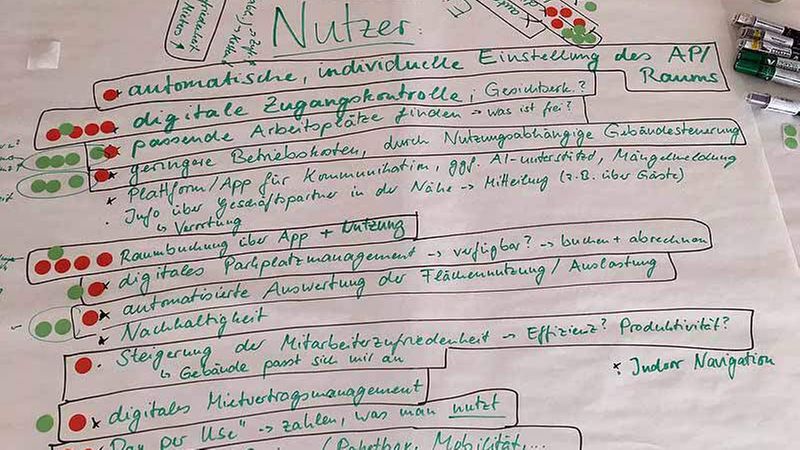 Nutzer:
automatische, individuelle Einstellung des AP/
Raums
digitale Zugangskontrolle; Gesichtserk.?
passende Arbeitsplätze finden → was ist frei?
geringere Betriebskosten, durch Nutzungsabhängige Gebäudesteuerung
Plattform/App für Kommunikation, ggf. AI-unterstützt, Mängelmeldung
Info über Geschäftspartner in der Nähe → Mitteilung (z.B. über Gäste)
↳ Verortung
Raumbuchung über App + Nutzung
digitales Parkplatzmanagement → verfügbar? → buchen + abrechnen
automatisierte Auswertung der Flächennutzung / Auslastung
Nachhaltigkeit
Steigerung der Mitarbeiterzufriedenheit → Effizienz? Produktivität?
↳ Gebäude passt sich mir an
* Indoor Navigation
digitales Mietvertragsmanagement
"Pay per Use" → zahlen, was man nutzt
Mobilität, ...